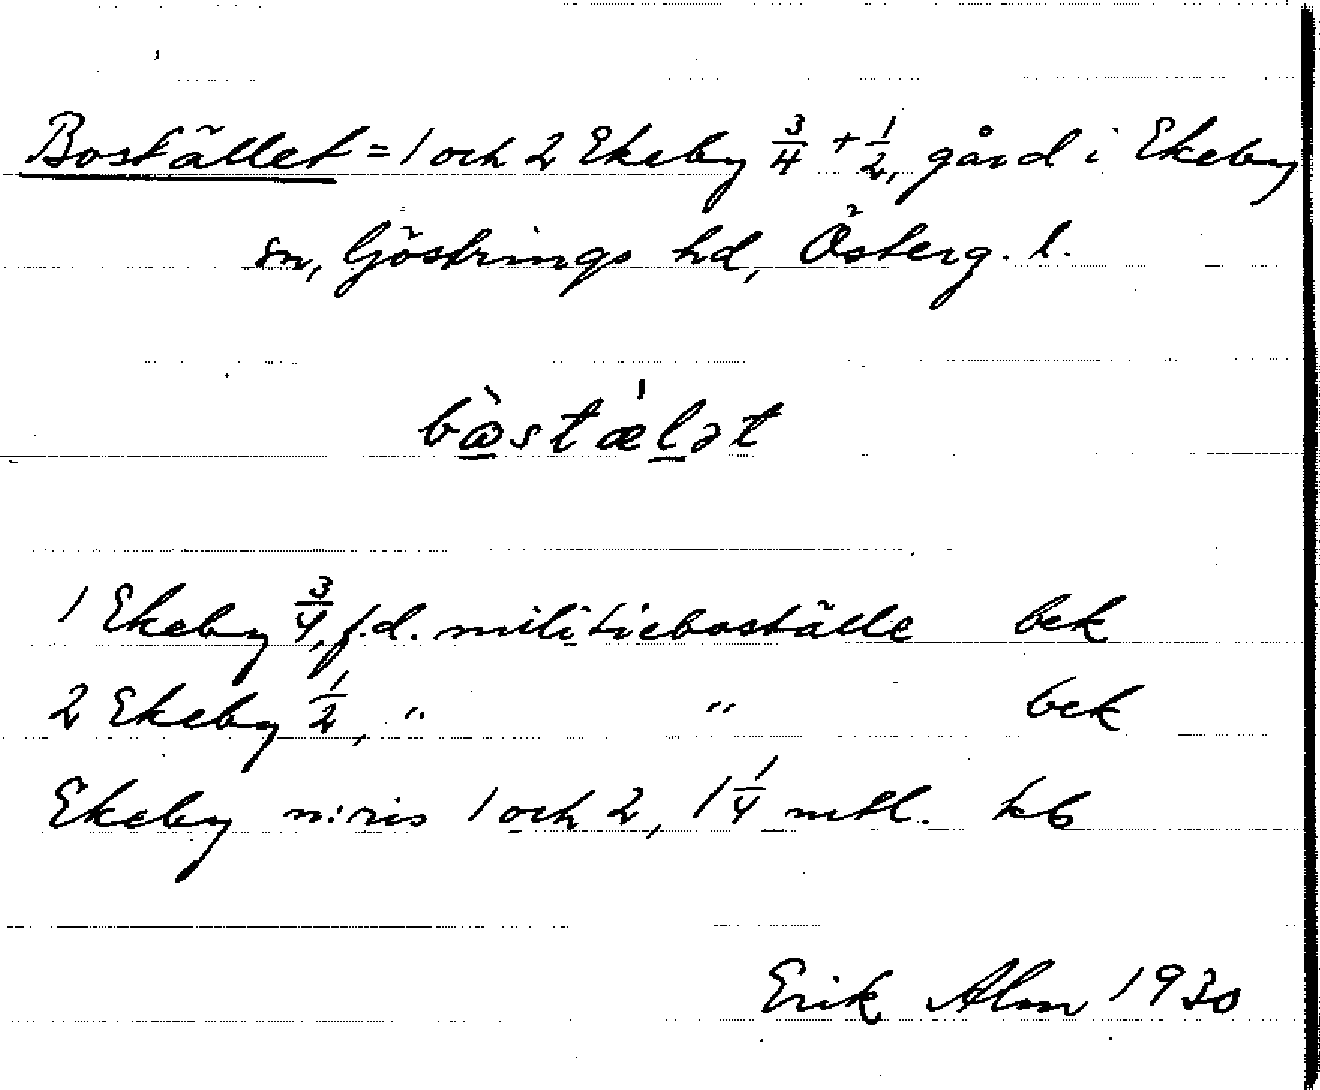 Bostället = 1 och 2 Ekeby 3/4 + 1/2, gård i Ekeby
sn, Göstrings hd, Österg. l.
bàstæ̍lət
1 Ekeby 3/4, f.d. militieboställe bek
2 Ekeby 1/2, " " bek
Ekeby n:ris 1 och 2, 1 1/4 mtl. kb
Erik Alm 1930